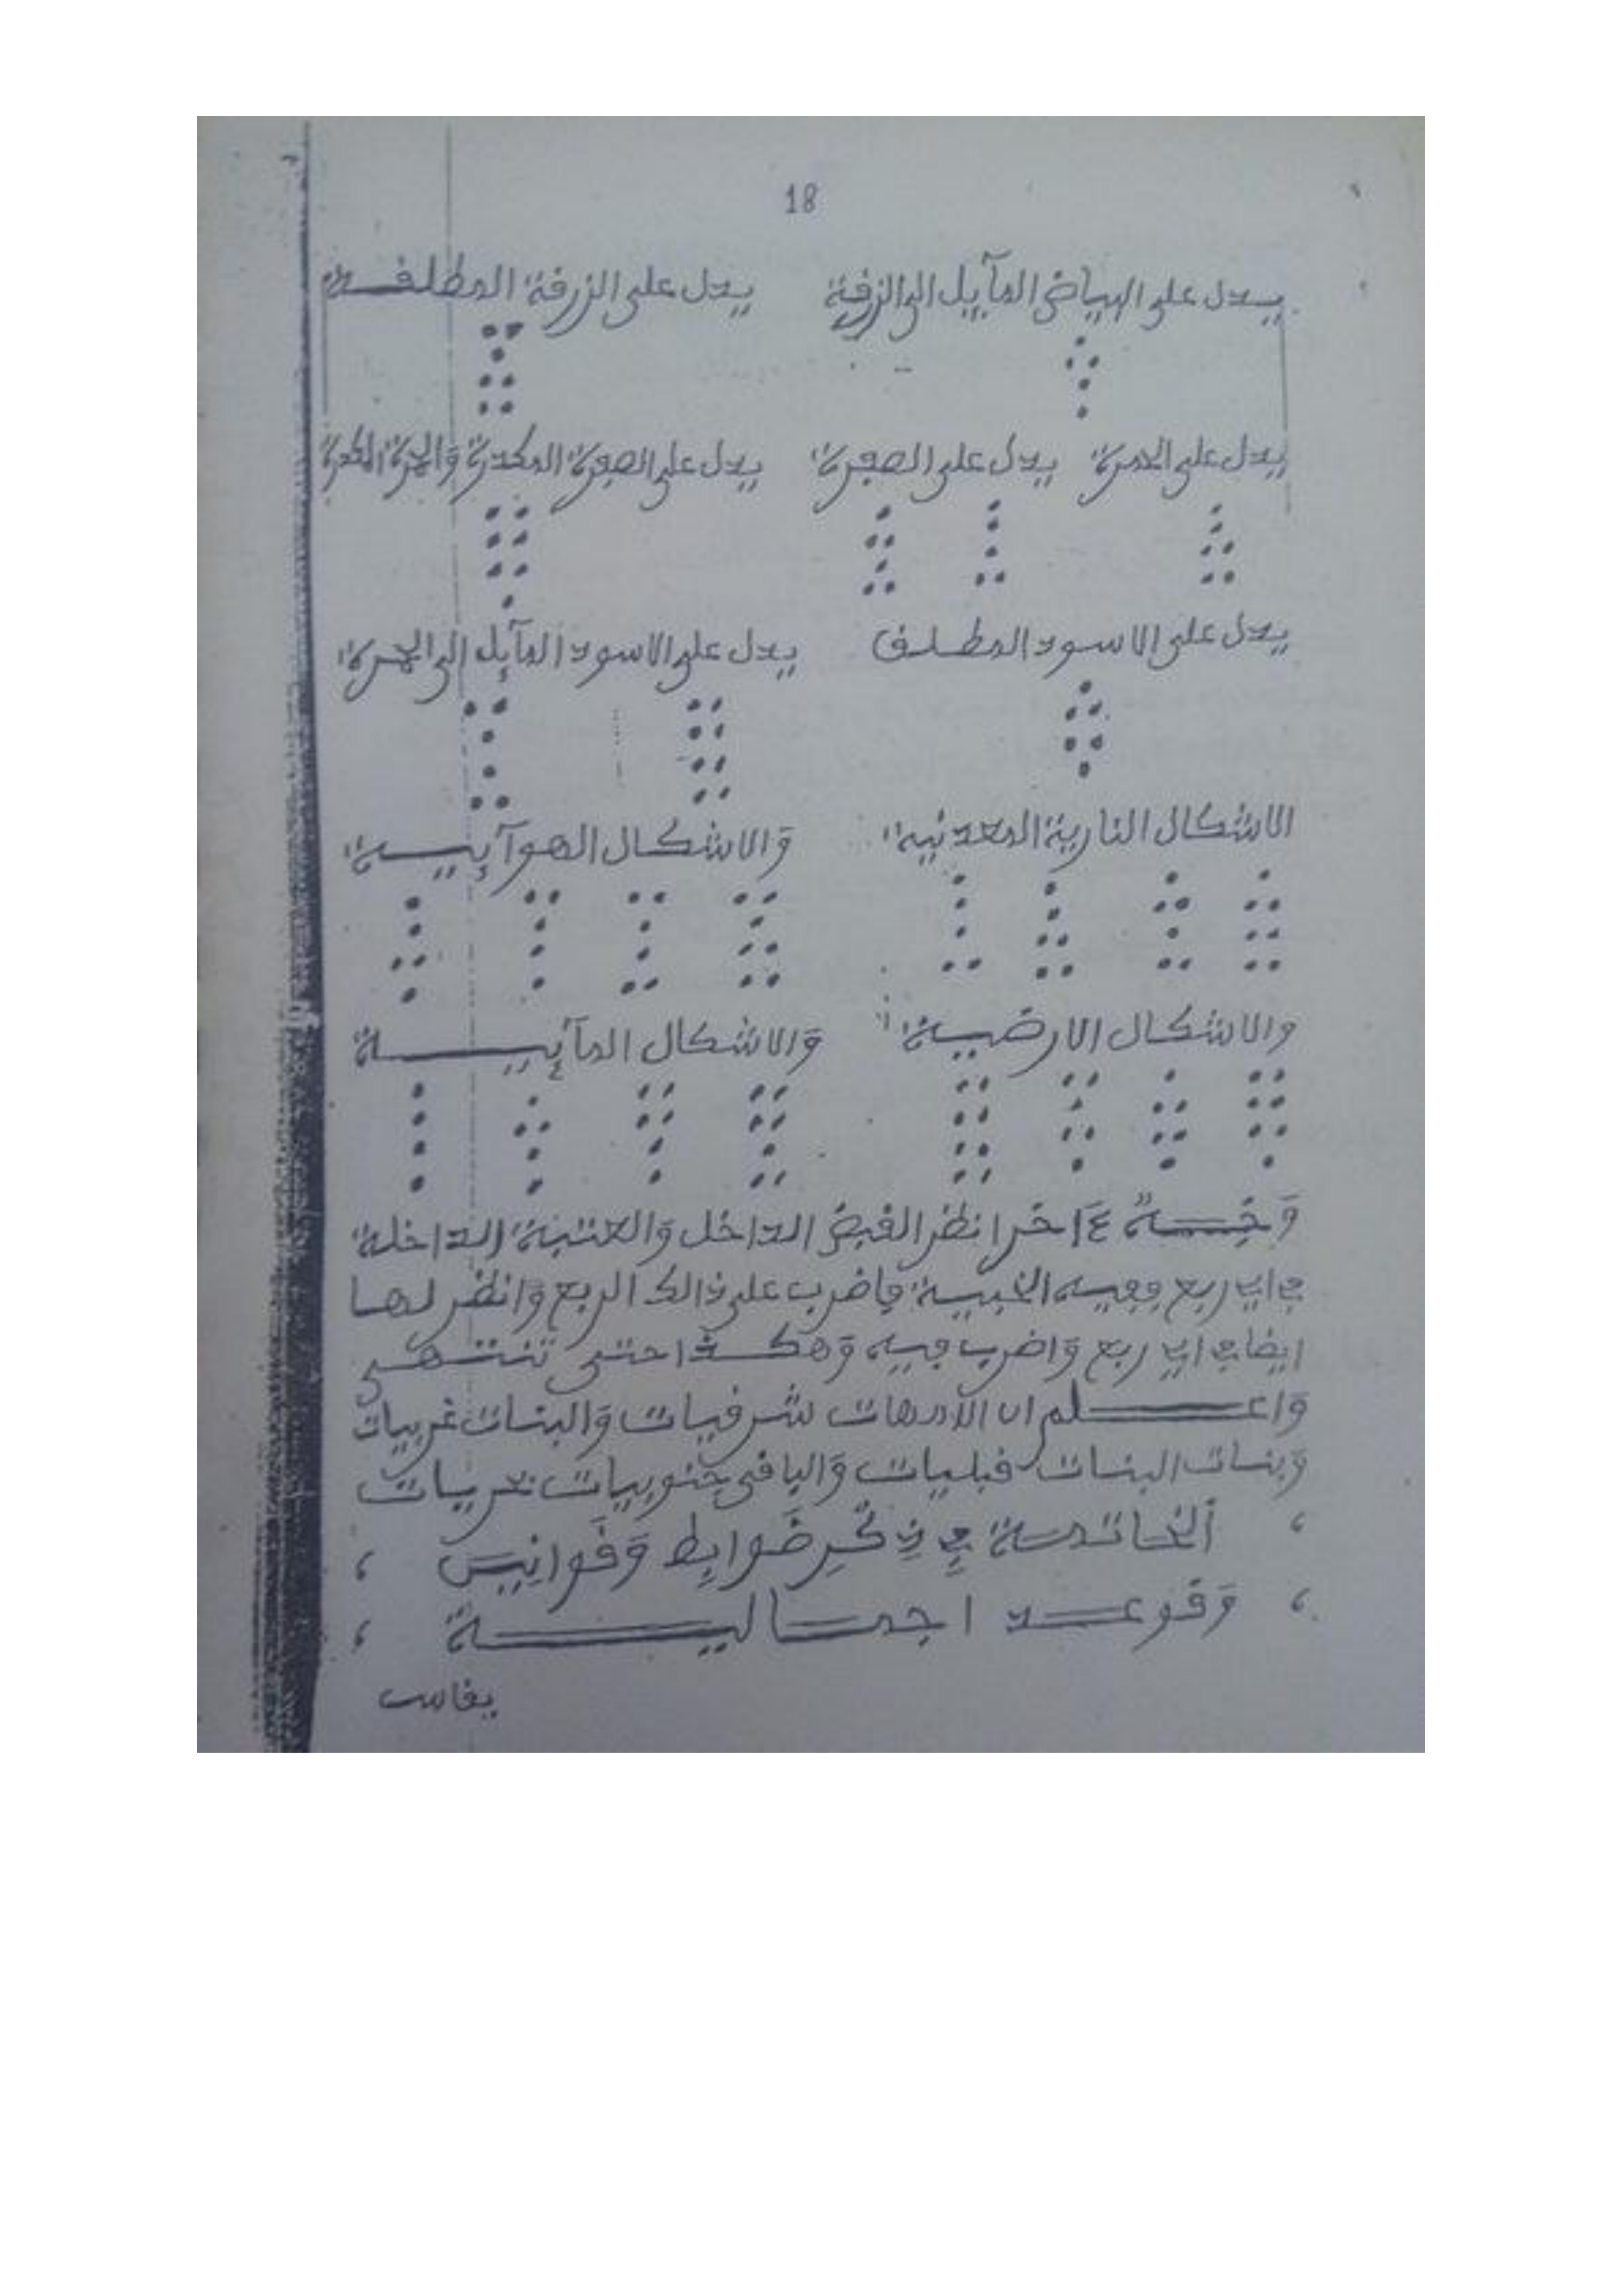 18
يدل على البياض المآيل الى الزرقة يدل على الزرقة المطلقة
يدل على الحمرة يدل على الصفرة يدل على الصفرة المكدرة والحمرة المكدرة
يدل على الاسود المطلق يدل على الاسود المآيل الى الحمرة
الاشكال النارية المعدنية وَالاشكال الهوآيية
والاشكال الارضية وَالاشكال المآيية
وَ اخر انظر القبض الداخل وَالعتبة الداخلة
في اي ربع ففيه الخبية فاضرب على ذالك الربع وَانظر لها
ايضا في اي ربع وَاضرب فيه وَهكذا حتى تنتهى
وَاعلم ان الامهات شرقيات وَالبنات غربيات
وَبنات البنات قبليات وَالباقى جنوبيات بحريات
، اَلخاتمة في ذِكْرِ ضَوابِط وَقَوانِين ،
، وَقوعد اجمالية ،
يقاس